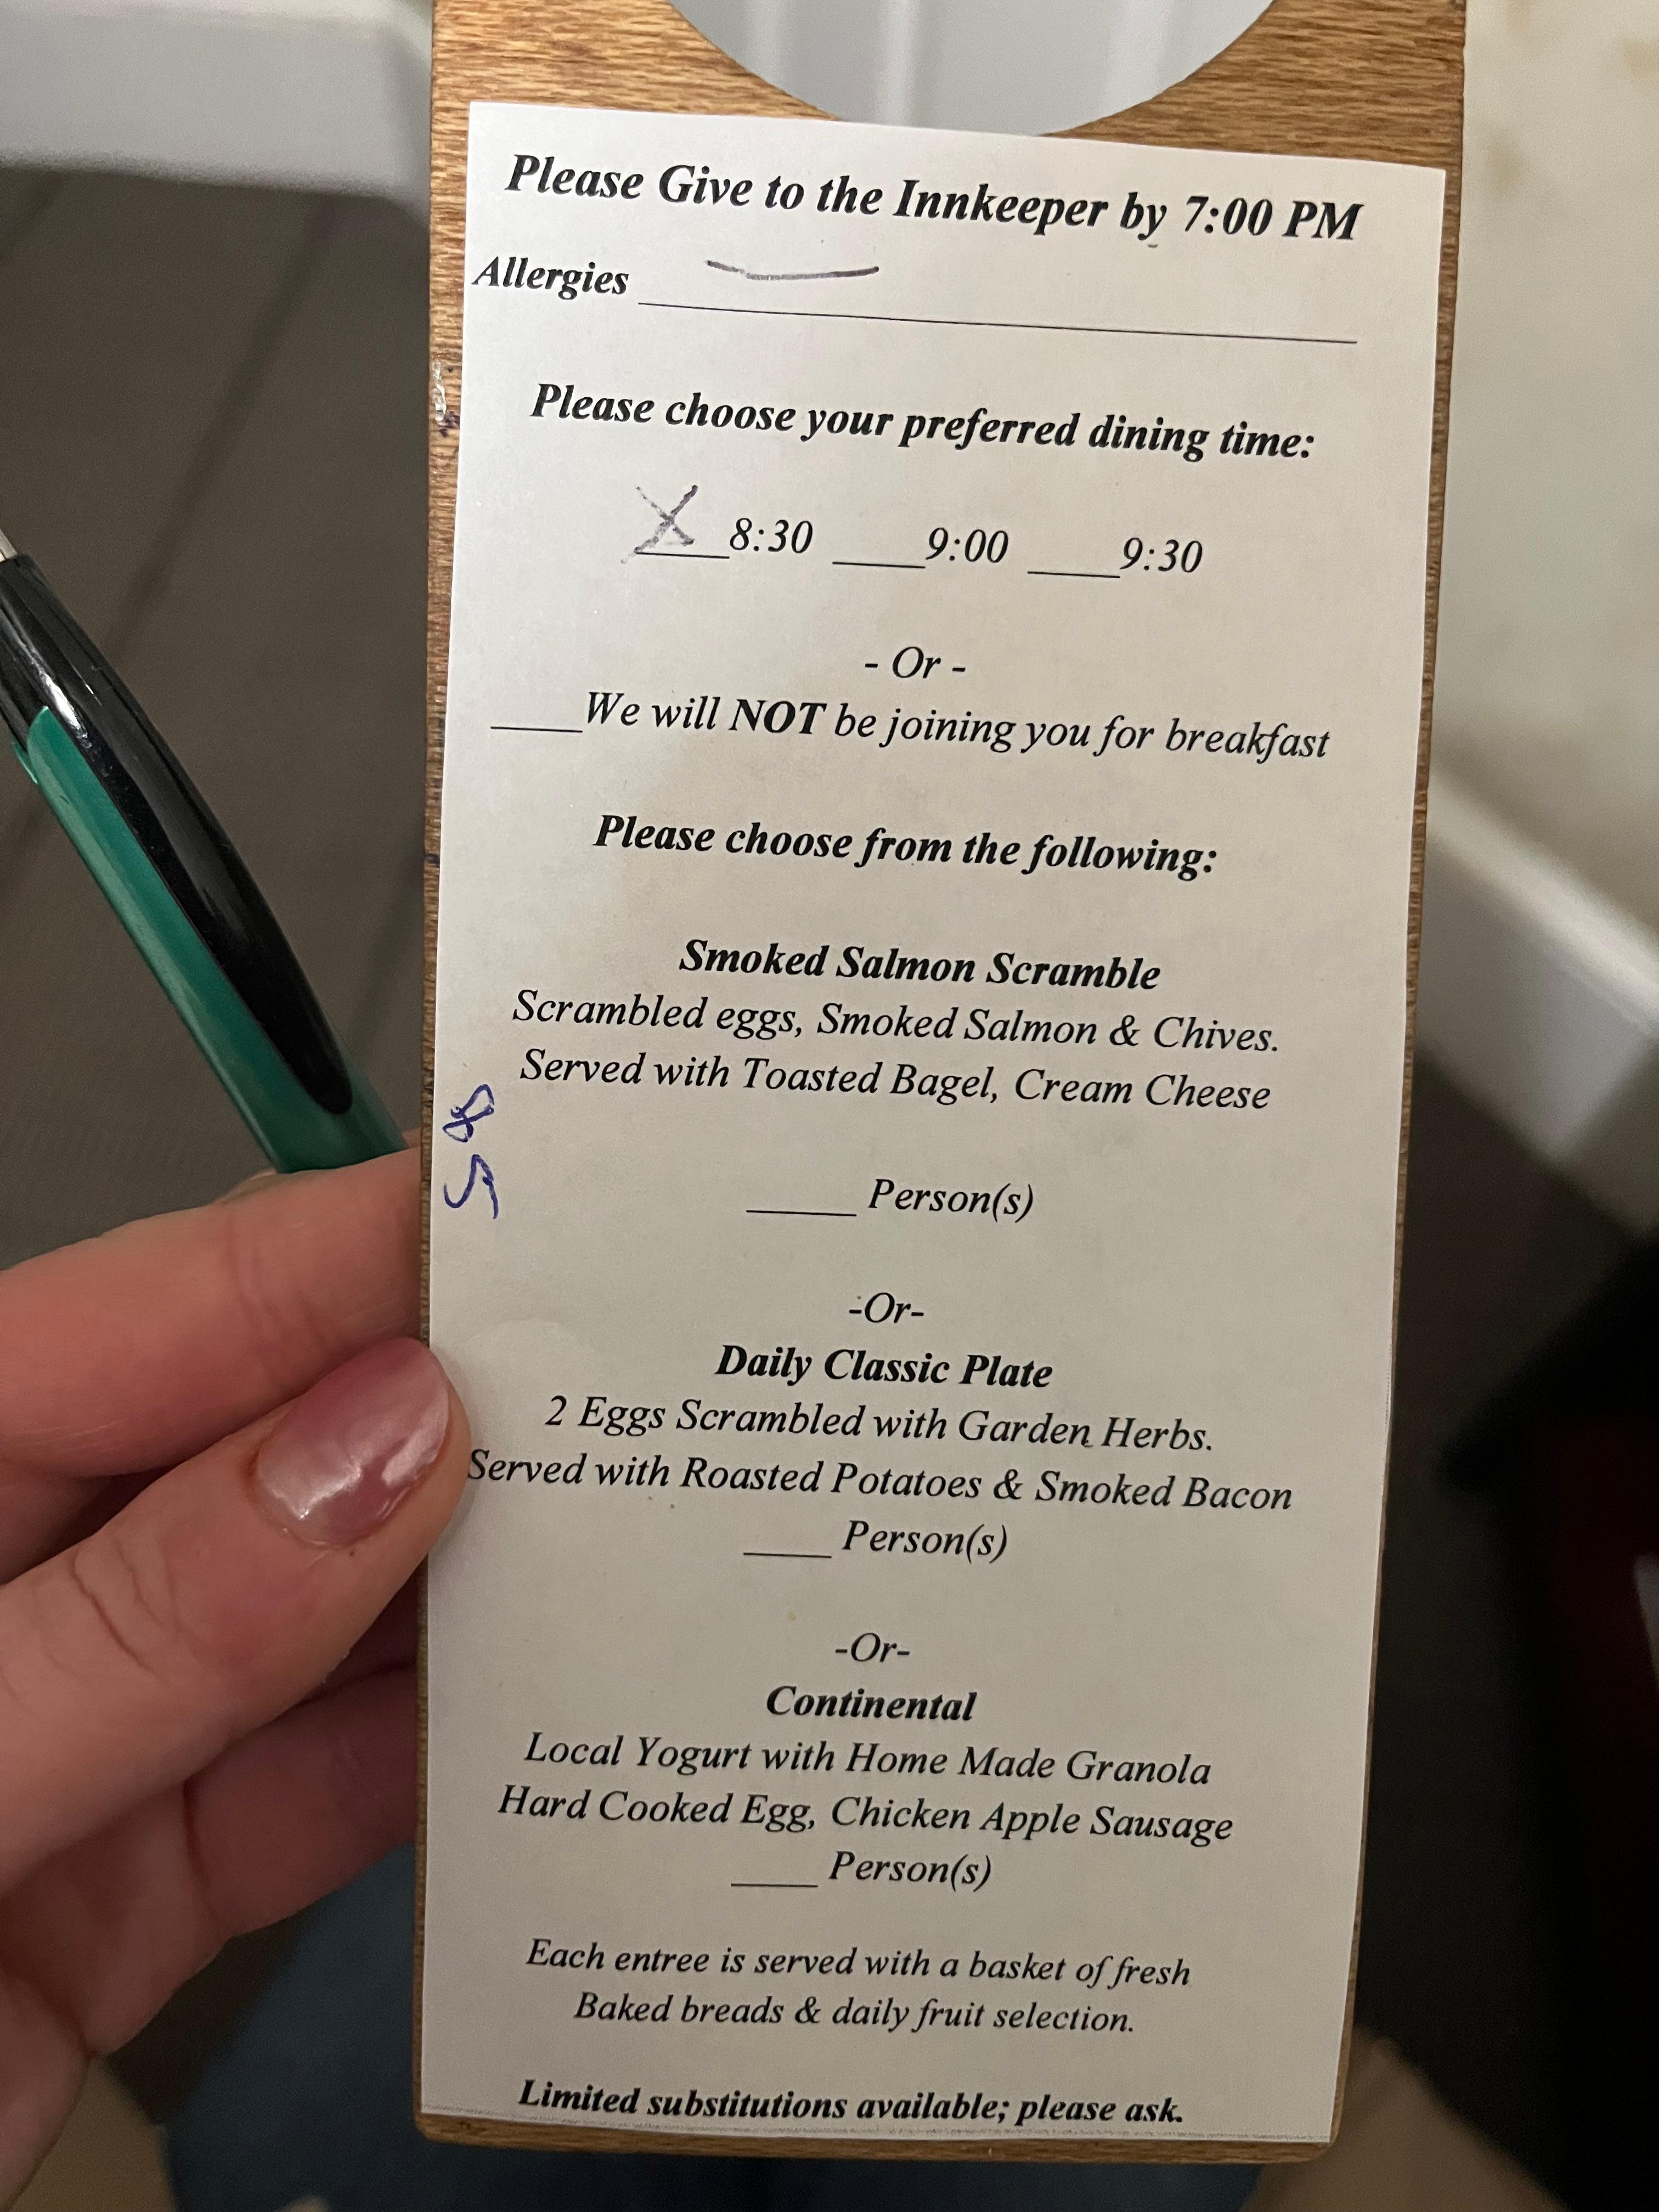 Please Give to the Innkeeper by 7:00 PM
Allergies —
Please choose your preferred dining time:
X 8:30 ____9:00 ____9:30
- Or -
____We will NOT be joining you for breakfast
Please choose from the following:
Smoked Salmon Scramble
Scrambled eggs, Smoked Salmon & Chives.
Served with Toasted Bagel, Cream Cheese
_____ Person(s)
-Or-
Daily Classic Plate
2 Eggs Scrambled with Garden Herbs.
Served with Roasted Potatoes & Smoked Bacon
____ Person(s)
-Or-
Continental
Local Yogurt with Home Made Granola
Hard Cooked Egg, Chicken Apple Sausage
____ Person(s)
Each entree is served with a basket of fresh
Baked breads & daily fruit selection.
Limited substitutions available; please ask.